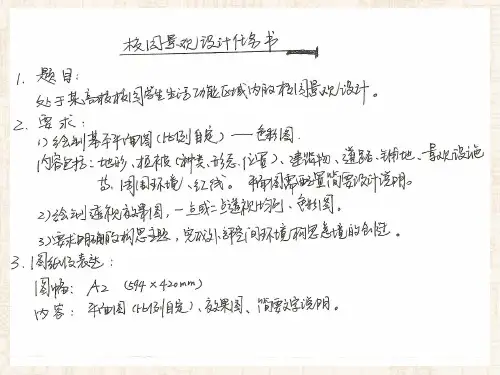 校园景观设计任务书
1. 题目：
处于某高校校园学生生活功能区域内的校园景观设计。
2. 要求：
1) 绘制基本平面图(比例自定)——色彩图.
内容包括：地形、植被(种类、形态、位置)、建筑物、道路、铺地、景观设施
等、周围环境、红线。平面图需配置简要设计说明。
2) 绘制透视效果图，一点或二点透视均可、色彩图。
3) 要求明确的构思主题，完成外部空间环境构思意境的创造。
3. 图纸及表达：
图幅： A2 (594×420mm)
内容： 平面图(比例自定)、效果图、简要文字说明。